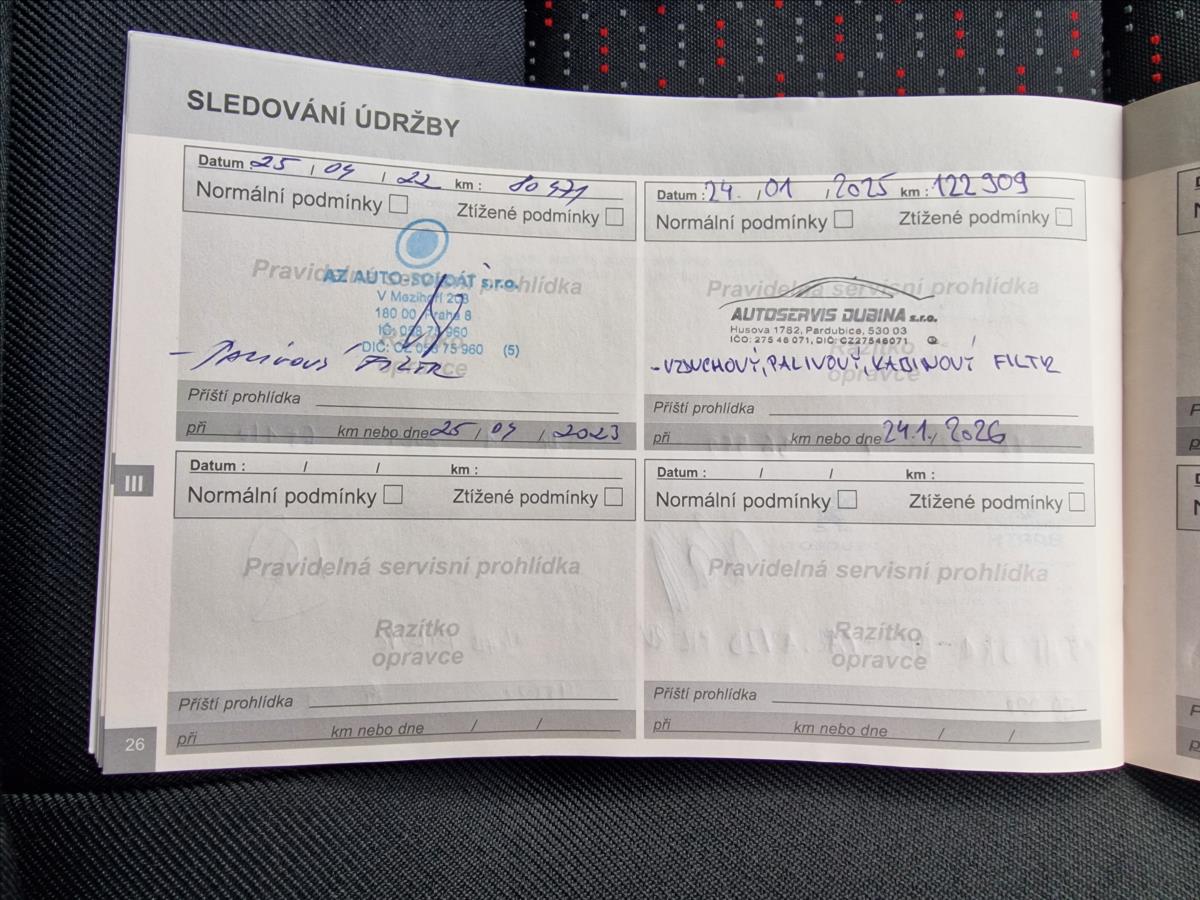 SLEDOVÁNÍ ÚDRŽBY
Datum : 25 / 04 / 22 km : 80 471
Normální podmínky Ztížené podmínky
Pravidelná servisní prohlídka
AZ AUTO-SOLDÁT s.r.o.
V Mezihoří 208
180 00 Praha 8
IČ: 058 75 960
DIČ: CZ 058 75 960 (5)
Razítko
opravce
- PALIVOVÝ FILTR
Příští prohlídka
při km nebo dne 25 / 04 / 2023
Datum : 24. / 01 / 2025 km : 122 909
Normální podmínky Ztížené podmínky
Pravidelná servisní prohlídka
AUTOSERVIS DUBINA s.r.o.
Husova 1782, Pardubice, 530 03
IČO: 275 46 071, DIČ: CZ27546071
Razítko
opravce
- VZDUCHOVÝ, PALIVOVÝ, KABINOVÝ FILTR
Příští prohlídka
při km nebo dne 24.1. / 2026
III
Datum : / / km :
Normální podmínky Ztížené podmínky
Pravidelná servisní prohlídka
Razítko
opravce
Příští prohlídka
při km nebo dne / /
Datum : / / km :
Normální podmínky Ztížené podmínky
Pravidelná servisní prohlídka
Razítko
opravce
Příští prohlídka
při km nebo dne / /
26